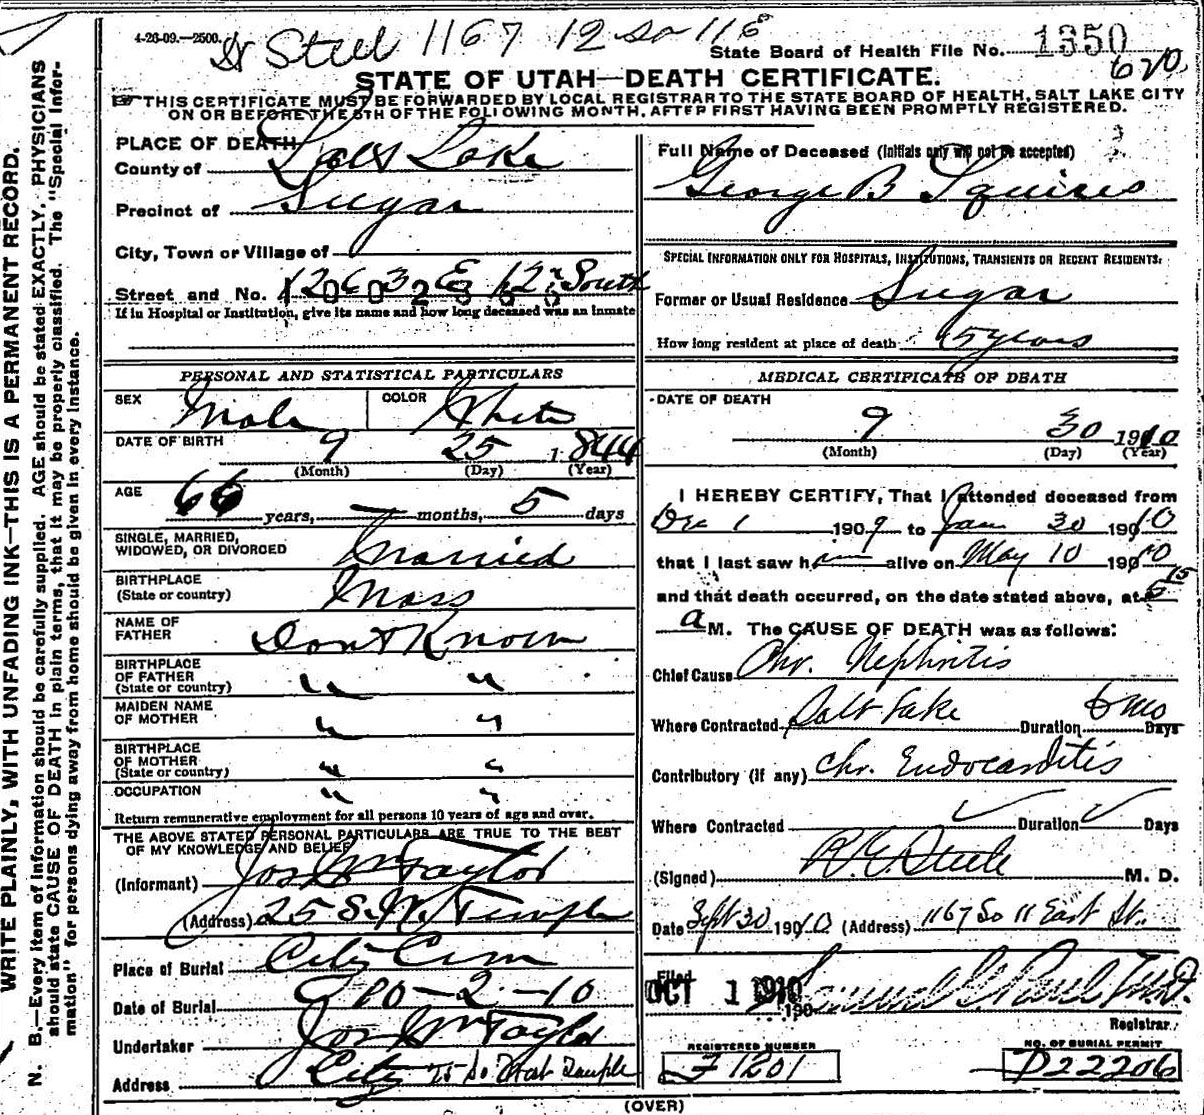 4-26-09.—2500.
Dr Steel 1167 12 So 11 E
State Board of Health File No. 1350
620
STATE OF UTAH—DEATH CERTIFICATE.
THIS CERTIFICATE MUST BE FORWARDED BY LOCAL REGISTRAR TO THE STATE BOARD OF HEALTH, SALT LAKE CITY
ON OR BEFORE THE 5TH OF THE FOLLOWING MONTH, AFTER FIRST HAVING BEEN PROMPTLY REGISTERED.
WRITE PLAINLY, WITH UNFADING INK—THIS IS A PERMANENT RECORD.
N. B.—Every item of information should be carefully supplied. AGE should be stated EXACTLY. PHYSICIANS
should state CAUSE OF DEATH in plain terms, that it may be properly classified. The "Special Infor-
mation" for persons dying away from home should be given in every instance.
PLACE OF DEATH
County of Salt Lake
Precinct of Sugar
City, Town or Village of
Street and No. E 12th South
If in Hospital or Institution, give its name and how long deceased was an inmate
PERSONAL AND STATISTICAL PARTICULARS
SEX Male COLOR White
DATE OF BIRTH 9 25 1844
(Month) (Day) (Year)
AGE 66 years, — months, 5 days
SINGLE, MARRIED,
WIDOWED, OR DIVORCED Married
BIRTHPLACE
(State or country) Mass
NAME OF
FATHER Dont Know
BIRTHPLACE
OF FATHER
(State or country) " "
MAIDEN NAME
OF MOTHER " "
BIRTHPLACE
OF MOTHER
(State or country) " "
OCCUPATION " "
Return remunerative employment for all persons 10 years of age and over.
THE ABOVE STATED PERSONAL PARTICULARS ARE TRUE TO THE BEST
OF MY KNOWLEDGE AND BELIEF
(Informant) Jos Wm Taylor
(Address) 25 S. W. Temple
Place of Burial City Cem
Date of Burial 10-2-10
Undertaker Jos Wm Taylor
Address City 25 So West Temple
Full Name of Deceased (Initials only will not be accepted)
George B Squires
SPECIAL INFORMATION ONLY FOR HOSPITALS, INSTITUTIONS, TRANSIENTS OR RECENT RESIDENTS.
Former or Usual Residence Sugar
How long resident at place of death 5 years
MEDICAL CERTIFICATE OF DEATH
DATE OF DEATH
9 30 1910
(Month) (Day) (Year)
I HEREBY CERTIFY, That I attended deceased from
Dec 1 1909 to Jan 30 1910
that I last saw h alive on May 10 1910
and that death occurred, on the date stated above, at 15
a M. The CAUSE OF DEATH was as follows:
Chief Cause Chr. Nephritis
Where Contracted Salt Lake Duration 6 mo Days
Contributory (if any) Chr. Endocarditis
Where Contracted Duration Days
(Signed) R. E. Steele M. D.
Date Sept 30 1910 (Address) 1167 So 11 East St.
Filed
OCT 1 1910 190
Registrar.
REGISTERED NUMBER
F1201
NO. OF BURIAL PERMIT
D22206
(OVER)